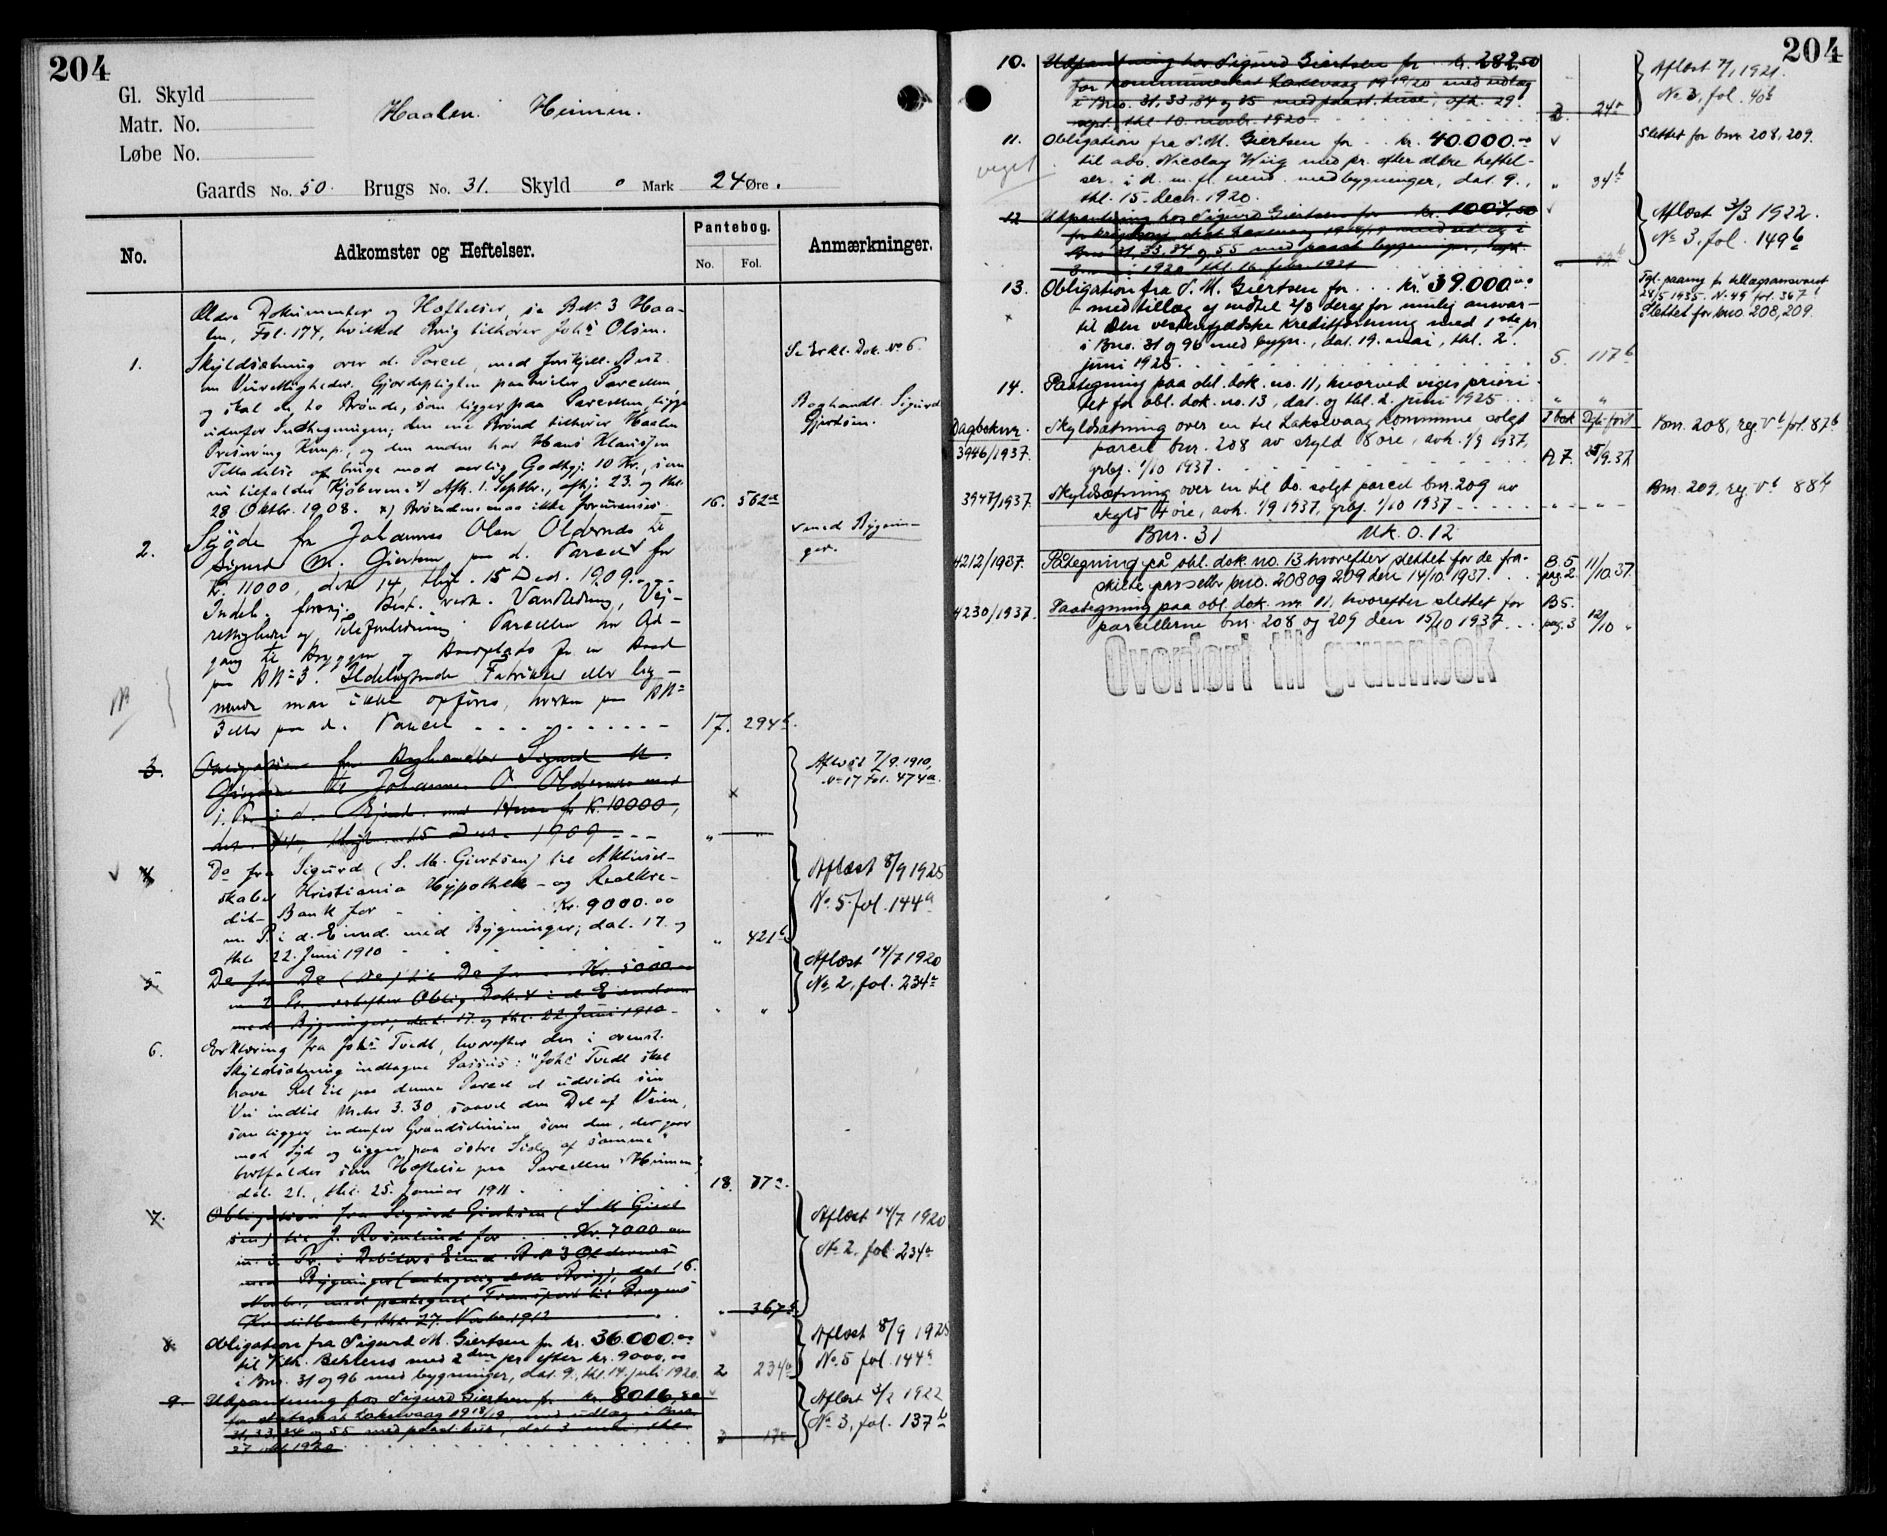 204
Gl. Skyld
Matr. No.
Løbe No.
Haalen. Heimen.
Gaards No. 50. Brugs No. 31. Skyld 0 Mark 24 Øre.
No.
Adkomster og Heftelser.
Pantebog.
No. Fol.
Anmærkninger.
Ældre Dokumenter og Heftelser, se BN. 3 Haa-
len, Fol. 174, hvilket Brug tilhører Johs Olsen.
1. Skyldsætning over d. Parcel, med forskjell. Best.
om Veirettigheder. Gjærdepligten paahviler Parcellen,
og skal de to Brønde, som ligger paa Parcellen, ligge
udenfor Indhegningen; den ene Brønd tilhører Haalen
Preserving Komp., og den anden har Hans Klausen
Tilladelse at bruge mod aarlig Godtgj. 10 Kr., som
nu tilfalder Kjøberne x) Afh. 1. Septbr., afhj. 23. og thl.
28 Oktbr. 1908. x) Brøndene maa ikke forurenses -
16. 562a
Se Erkl. Dok. No 6.
Boghandl. Sigurd
Gjertsen.
2. Skjøde fra Johannes Olsen Oldernes til
Sigurd M. Giertsen paa d. Parcel for
kr. 11000, dat. 14, thgl. 15 Decs. 1909.
Indeh. forskj. Best. vedk. Vandledning, Vei-
rettigheder og Telefonledning. Parcellen har Ad-
gang til Bryggen og Baadplads for en Baad
paa BN= 3. Ildelugtende Fabrikker eller lig-
nende maa ikke opføres, hverken paa BN=
3 eller paa d. Parcel
17. 294b.
v med Bygnin-
ger.
3. Obligation fra Boghandler Sigurd M.
Giertsen til Johannes O. Oldernes med
1. Pr. i d. Eiend. med Huse for Kr. 10000,
dat. 14, thgl. 15 Decs. 1909
" "
Aflæst 7/9. 1910,
No 17 Fol. 474a.
4. Do fra Sigurd (S. M. Giertsen) til Aktiesel-
skabet Kristiania Hypothek- og Realkre-
dit- Bank for Kr. 9000.00
m. Pr. i d. Eiend. med Bygninger; dat. 17. og
thl. 22. Juni 1910
" 421b
Aflæst 8/9 1925
No 5 fol. 144a
5. Do fra Do (Do) til Do for Kr. 5000.00
m 2 Pr. efter Oblig. Dok. 4 i d. Eiendom
med Bygninger, dat. 17. og thl. 22 Juni 1910
" "
Aflæst 14/7 1920
No 2, fol. 234a
6. Erklæring fra Johs Tvedt, hvorefter den i ovenst.
Skyldsætning indtagne Passus: "Johs Tvedt skal
have Ret til paa denne Parcel at udvide sin
Vei indtil Meter 3.30, saavel den Del af Veien,
som ligger indenfor Grændselinien som den, der gaar
mod Syd og ligger paa østre Side af samme"
bortfalder som Heftelse paa Parcellen "Heimen";
dat. 21., thl. 25. Januar 1911
18. 77a.
7. Obligation fra Sigurd Giertsen (S M Giert
sen) til J. Rosenlund for Kr. 7000.00
m. 1. Pr. i Debitors Eiend. B. N 3 Oldernes
med Bygninger (antagelig dette Brug), dat. 16.
Novbr., med paategnet Transport til Bergens
Kreditbank, thl. 27. Novbr. 1912
" 367b
Aflæst 14/7 1920
No 2, fol. 234a
8. Obligation fra Sigurd M. Giertsen for kr. 36.000.00
til Vilh. Behrens med 2den pr. efter kr. 9000.00
i Bno. 31 og 96 med bygninger, dat. 9., thl. 14. juli 1920.
2 234a
Aflæst 8/9 1925
No 5 fol. 144a
9. Utpantning hos Sigurd Giertsen for kr. 8016,80
for statsskat Laksevaag 1918/19, med utlæg i Bno.
31, 33, 34 og 55 med paast. hus,
27. okt. 1920.
Aflæst 3/2 1922
No 3, fol. 137b
204
10. Utpantning hos Sigurd Giertsen for kr. 282,50
for kommuneskat Laksevaag 1919/20 med utlæg
i Bno. 31, 33, 34 og 55 med paast. huse, afh. 29.
sept. thl. 10. novbr. 1920.
3. 24a
Aflæst 7/1 1921.
No 3, fol. 40b
11. Obligation fra S. M. Giertsen for kr. 40.000.00
til adv. Nicolay Wiig med pr. efter ældre heftel-
ser i d. m. fl. eiend. med bygninger, dat. 9.,
thl. 15. decbr. 1920.
" 34b
Slettet for bnr. 208, 209.
veget
12. Utpantning hos Sigurd Giertsen for kr. 1004,50
Bno. 31, 33, 34 og 55 med paast. bygninger, afh.
1920 thl. 16. febr. 1921
Aflæst 3/3 1922.
No 3, fol. 149b
13. Obligation fra S. M. Giertsen for kr. 39.000.00
+ med tillæg af indtil 2/3 deraf for mulig ansvar -
til Den vestenfjeldske kreditforening med 1ste pr.
i Bno. 31 og 96 med bygn., dat. 19. mai, thl. 2.
juni 1925.
5. 117b
28/5 1935. N. 49 fol. 367
Slettet for bno. 208, 209.
14. Paategning paa obl. dok. no. 11, hvorved viges priori-
tet for obl. dok. no. 13, dat. og thl. 2. juni 1925
" "
Dagboknr.
3946/1937. Skyldsætning over en til Laksevaag kommune solgt
parcel bnr. 208 av skyld 8 øre, avh. 1/9 1937,
grbg. 1/10 1937.
A 7. 25/9.37
Bnr. 208, reg. Vb fol. 87b
3947/1937. Skyldsætning over en til do. solgt parcel bnr. 209 av
skyld 4 øre, avh. 1/9 1937, grbg. 1/10 1937
Bnr. 209, reg. Vb 88b
Bnr. 31 Mk. 0.12
4212/1937. Påtegning på obl. dok. no. 13 hvorefter slettet for de fra-
skilte parseller bno. 208 og 209 den 14/10 1937.
B. 5 pag. 2. 11/10.37.
4230/1937. Paategning paa obl. dok. nr. 11, hvorefter slettet for
parcellerne bnr. 208 og 209 den 15/10 1937.
B 5. pag. 3 12/10 "
Overført til grunnbok